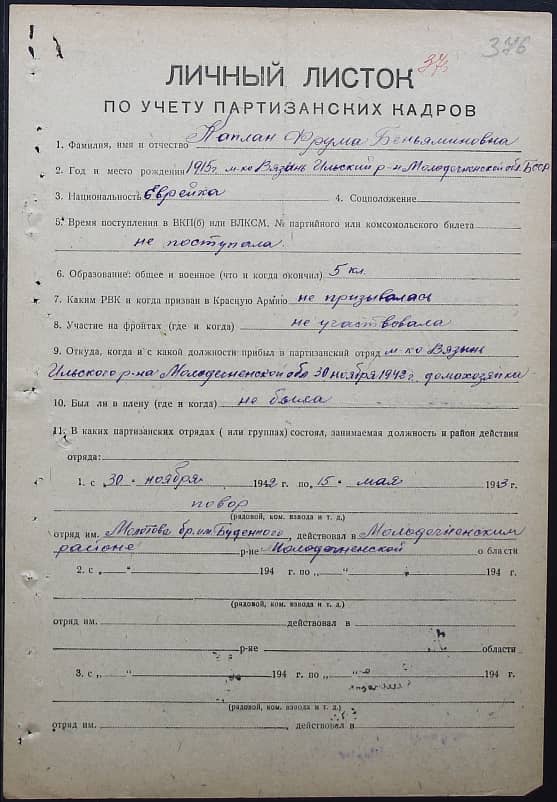 376
376
ЛИЧНЫЙ ЛИСТОК
ПО УЧЕТУ ПАРТИЗАНСКИХ КАДРОВ
1. Фамилия, имя и отчество Каплан Фрума Беньяминовна
2. Год и место рождения 1915г м-ко Вязынь Ильский р-н Молодечненской обл. БССР
3. Национальность Еврейка 4. Соцположение
5. Время поступления в ВКП(б) или ВЛКСМ, № партийного или комсомольского билета
не поступала
6. Образование: общее и военное (что и когда окончил) 5 кл.
7. Каким РВК и когда призван в Красную Армию не призывалась
8. Участие на фронтах (где и когда) не участвовала
9. Откуда, когда и с какой должности прибыл в партизанский отряд м-ко Вязынь
Ильского р-на Молодечненской обл 30 ноября 1942 г. домохозяйка
10. Был ли в плену (где и когда) не была
11. В каких партизанских отрядах ( или группах) состоял, занимаемая должность и район действия
отряда:
1. с „30" ноября 1942 г. по „15" мая 1943 г.
повор
(рядовой, ком. взвода и т. д.)
отряд им. Молотова бр. им. Буденного, действовал в Молодечненским
районе р-не Молодечненской области
2. с „ " 194 г. по „ " 194 г.
(рядовой, ком. взвода и т. д.)
отряд им. действовал в
р-не области
3. с „ " 194 г. по „ " 194 г.
(рядовой, ком. взвода и т. д.)
отряд им. действовал в